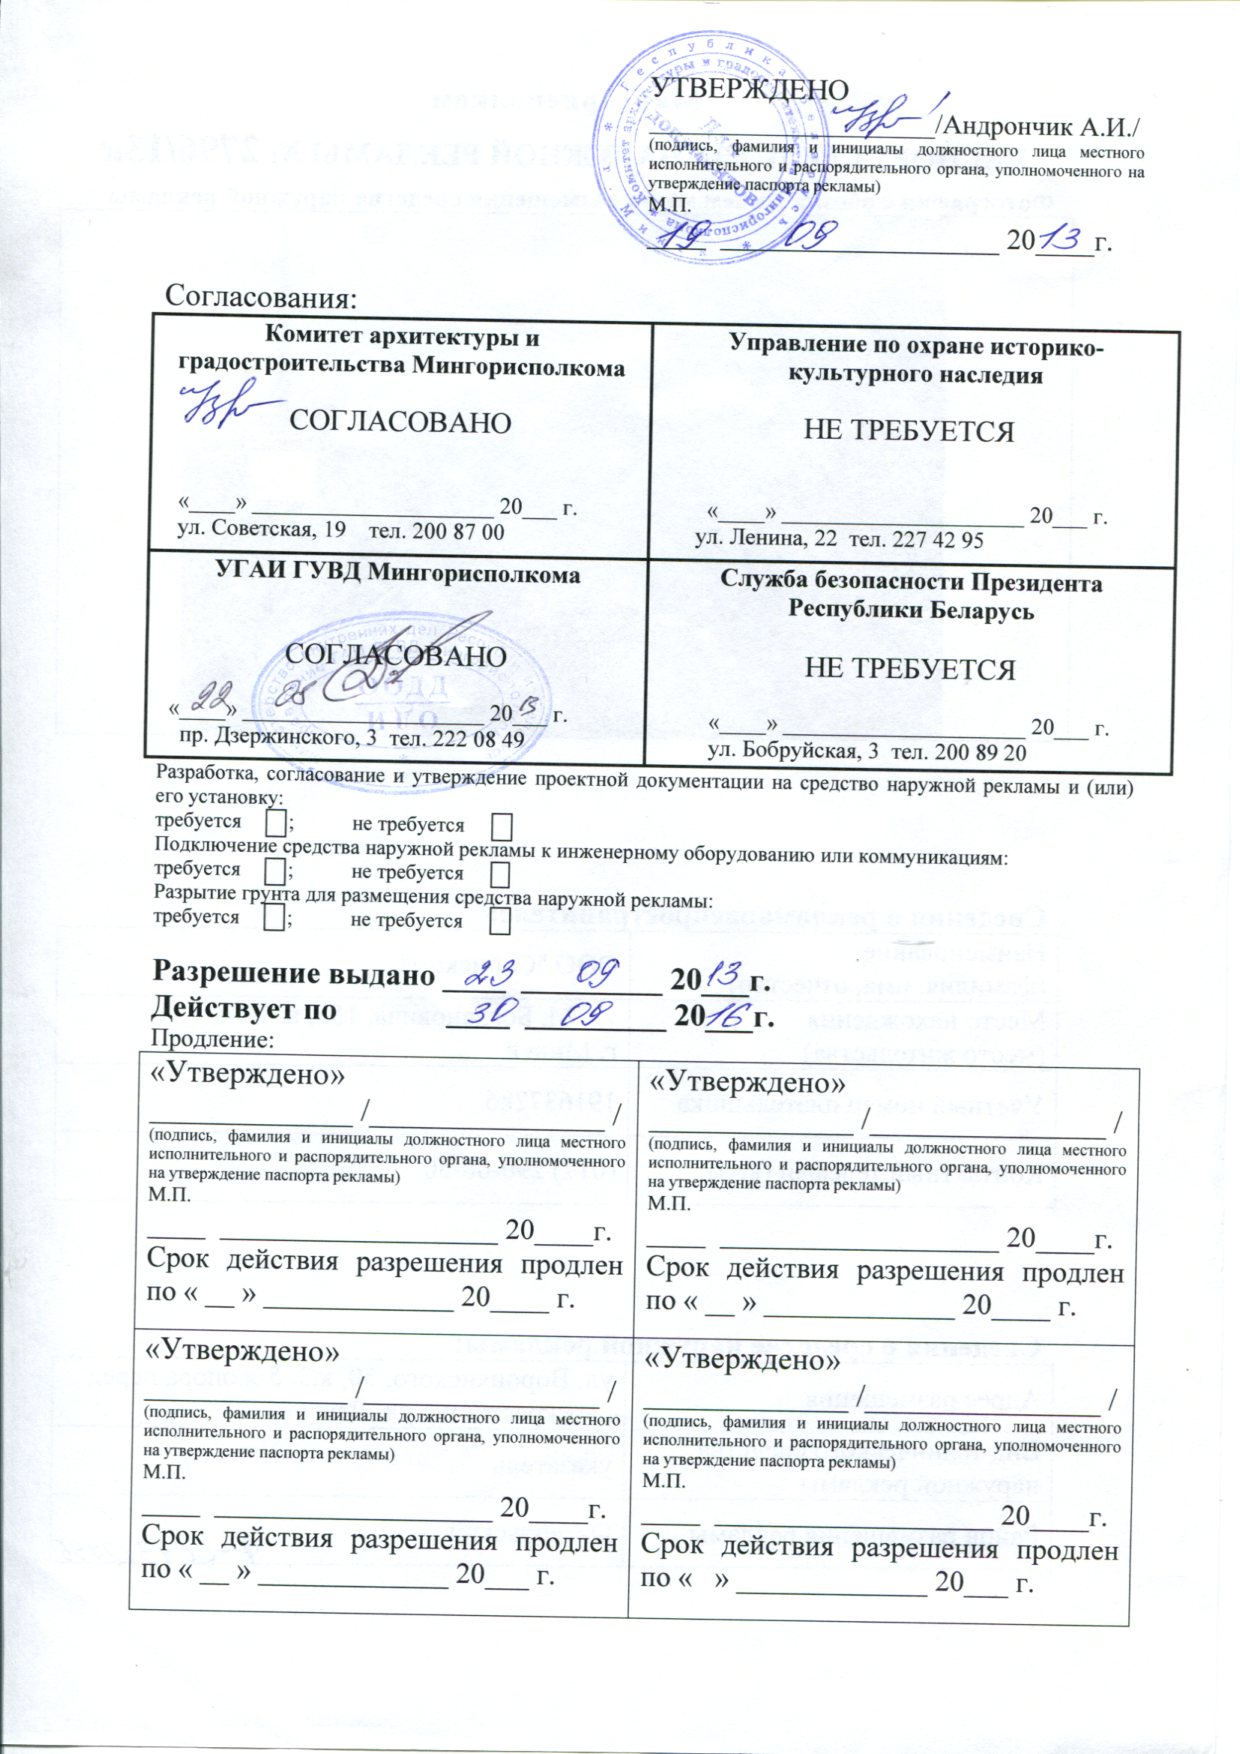 УТВЕРЖДЕНО
____________________/Андрончик А.И./
(подпись, фамилия и инициалы должностного лица местного
исполнительного и распорядительного органа, уполномоченного на
утверждение паспорта рекламы)
М.П.
19 09 2013г.
Республика Беларусь
Комитет архитектуры и градостроительства Мингорисполкома
г. Минск
Для документов
Согласования:
Комитет архитектуры и
градостроительства Мингорисполкома
СОГЛАСОВАНО
«____» ____________________ 20___ г.
ул. Советская, 19 тел. 200 87 00
Управление по охране историко-
культурного наследия
НЕ ТРЕБУЕТСЯ
«____» ____________________ 20___ г.
ул. Ленина, 22 тел. 227 42 95
УГАИ ГУВД Мингорисполкома
СОГЛАСОВАНО
«22» 08 2013 г.
пр. Дзержинского, 3 тел. 222 08 49
Служба безопасности Президента
Республики Беларусь
НЕ ТРЕБУЕТСЯ
«____» ____________________ 20___ г.
ул. Бобруйская, 3 тел. 200 89 20
Разработка, согласование и утверждение проектной документации на средство наружной рекламы и (или)
его установку:
требуется ; не требуется
Подключение средства наружной рекламы к инженерному оборудованию или коммуникациям:
требуется ; не требуется
Разрытие грунта для размещения средства наружной рекламы:
требуется ; не требуется
Разрешение выдано 23 09 2013г.
Действует по 30 09 2016г.
Продление:
«Утверждено»
______________ /________________ /
(подпись, фамилия и инициалы должностного лица местного
исполнительного и распорядительного органа, уполномоченного
на утверждение паспорта рекламы)
М.П.
____ ___________________ 20____г.
Срок действия разрешения продлен
по « __ » _____________ 20____ г.
«Утверждено»
______________ /________________ /
(подпись, фамилия и инициалы должностного лица местного
исполнительного и распорядительного органа, уполномоченного
на утверждение паспорта рекламы)
М.П.
____ ___________________ 20____г.
Срок действия разрешения продлен
по « __ » _____________ 20____ г.
«Утверждено»
______________ /________________ /
(подпись, фамилия и инициалы должностного лица местного
исполнительного и распорядительного органа, уполномоченного
на утверждение паспорта рекламы)
М.П.
____ ___________________ 20____г.
Срок действия разрешения продлен
по « __ » _____________ 20___ г.
«Утверждено»
______________ /________________ /
(подпись, фамилия и инициалы должностного лица местного
исполнительного и распорядительного органа, уполномоченного
на утверждение паспорта рекламы)
М.П.
____ ___________________ 20____г.
Срок действия разрешения продлен
по « » _____________ 20___ г.